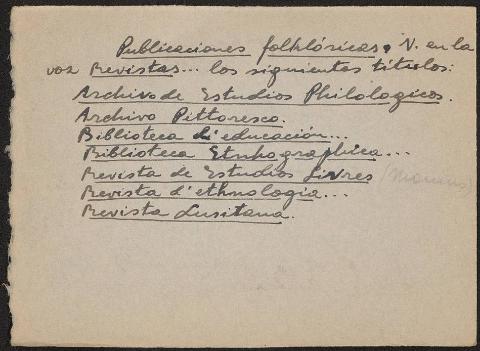 Publicaciones folklóricas. V. en la
voz Revistas... los siguientes títulos:
Archivo de Estudios Philologicos.
Archivo Pittoresco.
Biblioteca d'educación...
Biblioteca Etnhographica...
Revista de Estudios Livres
Revista d'ethnologia...
Revista Lusitana.